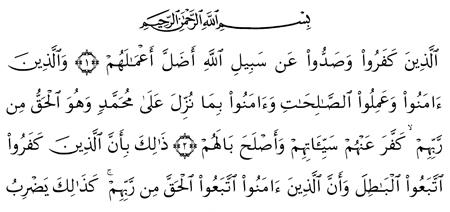 بِسْمِ ٱللَّهِ ٱلرَّحْمَٰنِ ٱلرَّحِيمِ
ٱلَّذِينَ كَفَرُوا۟ وَصَدُّوا۟ عَن سَبِيلِ ٱللَّهِ أَضَلَّ أَعْمَٰلَهُمْ ﴿١﴾ وَٱلَّذِينَ
ءَامَنُوا۟ وَعَمِلُوا۟ ٱلصَّٰلِحَٰتِ وَءَامَنُوا۟ بِمَا نُزِّلَ عَلَىٰ مُحَمَّدٍ وَهُوَ ٱلْحَقُّ مِن
رَّبِّهِمْ ۙ كَفَّرَ عَنْهُمْ سَيِّـَٔاتِهِمْ وَأَصْلَحَ بَالَهُمْ ﴿٢﴾ ذَٰلِكَ بِأَنَّ ٱلَّذِينَ كَفَرُوا۟
ٱتَّبَعُوا۟ ٱلْبَٰطِلَ وَأَنَّ ٱلَّذِينَ ءَامَنُوا۟ ٱتَّبَعُوا۟ ٱلْحَقَّ مِن رَّبِّهِمْ ۚ كَذَٰلِكَ يَضْرِبُ